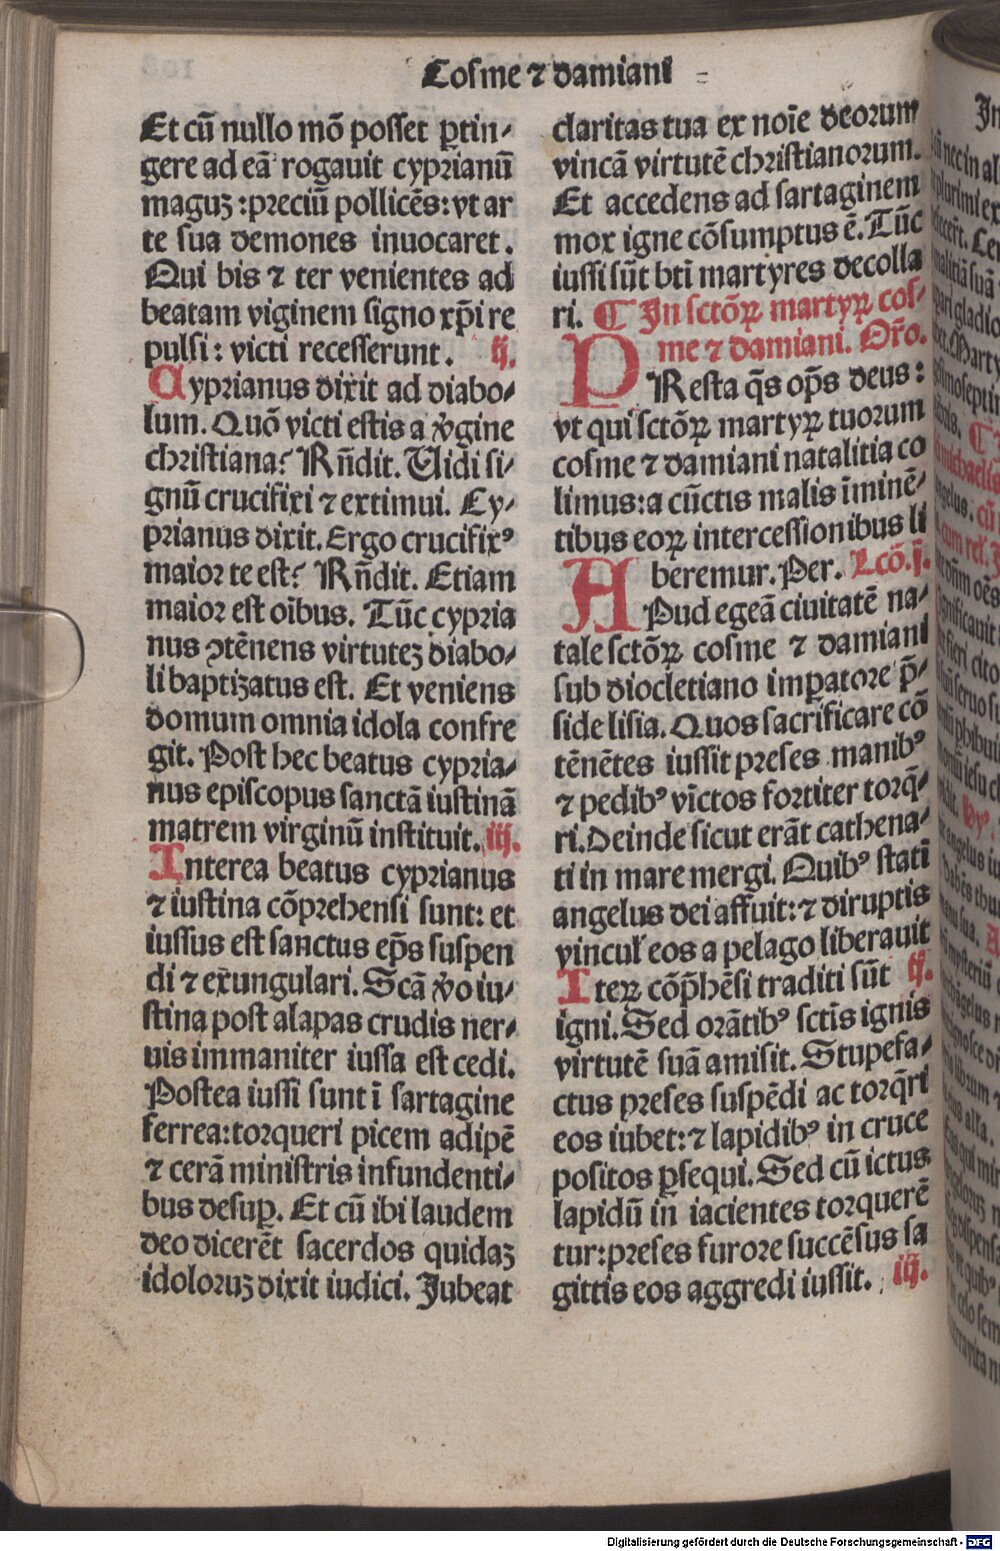 Cosme ⁊ damiani
Et cū nullo mō posset ꝑtin⸗
gere ad eā rogauit cyprianū
maguꝫ : preciū pollicēs: vt ar
te sua demones inuocaret.
Qui bis ⁊ ter venientes ad
beatam viginem signo xp̄i re
pulsi : victi recesserunt. ij.
Cyprianus dixit ad diabo⸗
lum. Quō victi estis a v̓gine
christiana? Rn̄dit. Uidi si⸗
gnū crucifixi ⁊ extimui. Cy⸗
prianus dixit. Ergo crucifixꝰ
maior te est? Rn̄dit. Etiam
maior est oībus. Tūc cypria
nus ꝯtēnens virtuteꝫ diabo⸗
li baptizatus est. Et veniens
domum omnia idola confre
git. Post hec beatus cypria⸗
nus episcopus sanctā iustinā
matrem virginū instituit. iij.
Interea beatus cyprianus
⁊ iustina cōprehensi sunt: et
iussus est sanctus ep̄s suspen
di ⁊ exungulari. Scā v̓o iu⸗
stina post alapas crudis ner⸗
uis immaniter iussa est cedi.
Postea iussi sunt ī sartagine
ferrea: torqueri picem adipē
⁊ cerā ministris infundenti⸗
bus desuꝑ. Et cū ibi laudem
deo dicerēt sacerdos quidaꝫ
idoloruꝫ dixit iudici. Jubeat
claritas tua ex noīe deorum
vincā virtutē christianorum.
Et accedens ad sartaginem
mox igne cōsumptus ē. Tūc
iussi sūt bt̄i martyres decolla
ri. ¶ In sctōꝝ martyꝝ cos⸗
me ⁊ damiani. Or̄o.
PResta q̄s op̄s deus:
vt qui sctōꝝ martyꝝ tuorum
cosme ⁊ damiani natalitia co
limus: a cūctis malis īminē⸗
tibus eoꝝ intercessionibus li
beremur. Per. Lcō. j.
APud egeā ciuitatē na⸗
tale sctōꝝ cosme ⁊ damiani
sub diocletiano imꝑatore p̄⸗
side lisia. Quos sacrificare cō
tēnētes iussit preses manibꝰ
⁊ pedibꝰ vīctos fortiter torq̄⸗
ri. Deinde sicut erāt cathena⸗
ti in mare mergi. Quibꝰ statī
angelus dei affuit: ⁊ diruptis
vincul̓ eos a pelago liberauit
Iteꝝ cōp̄hēsi traditi sūt ij.
igni. Sed orātibꝰ sctīs ignis
virtutē suā amisit. Stupefa⸗
ctus preses suspēdi ac torq̄ri
eos iubet: ⁊ lapidibꝰ in cruce
positos ꝑsequi. Sed cū ictus
lapidū in iacientes torquerē
tur: preses furore succēsus sa
gittis eos aggredi iussit. iij.
Digitalisierung gefördert durch die Deutsche Forschungsgemeinschaft - DFG